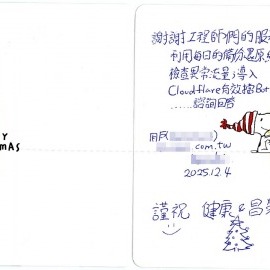 Y
MAS
謝謝工程師們的服
利用每日的備份還原
檢查異常流量；導入
Cloudflare有效擋Bot
......諮詢回答
用戶
com.tw
2025.12.4
謹祝 健康&昌